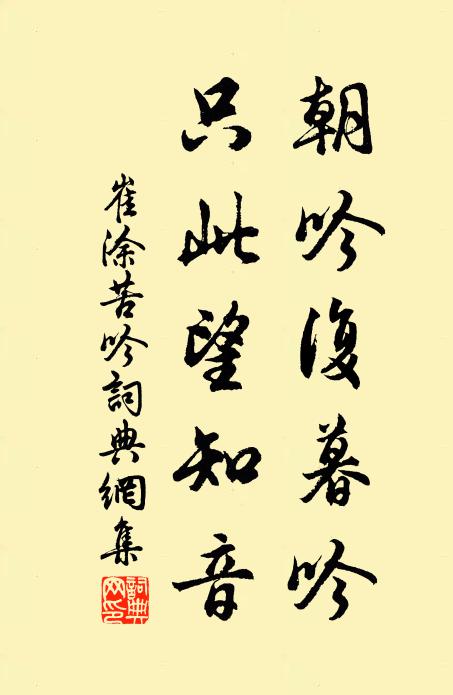 朝吟復暮吟
只此望知音
崔涂苦吟詞典網集
詞典網印